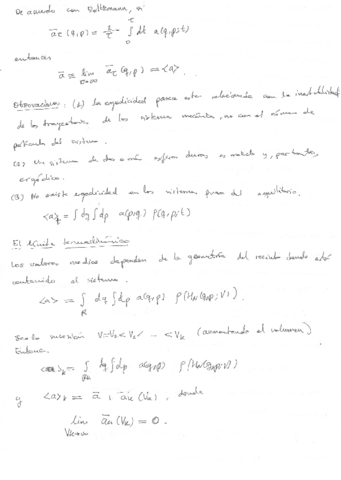 De acuerdo con Boltzmann, si
a̅_τ(q,p) = 1/τ ∫₀^τ dt a(q,p;t)
entonces
a̅ = lim_{τ→∞} a̅_τ(q,p) = <a>.
Observaciones: (1) La ergodicidad parece estar relacionada con la inestabilidad
de las trayectorias de los sistemas mecánicos, no con el número de
partículas del sistema.
(2) Un sistema de dos o más esferas duras es y, por tanto,
ergódico.
(3) No existe ergodicidad en los sistemas fuera del equilibrio.
<a>_t = ∫dq ∫dp a(p,q) ρ(q,p;t)
El límite termodinámico
Los valores medios dependen de la geometría del recinto donde está
contenido el sistema.
<a> = ∫_R dq ∫dp a(q,p) ρ(H_N(q,p;V)).
Sea la sucesión V=V₁<V₂< ... <V_k (aumentando el volumen)
Entonces
<a>_k = ∫_{R_k} dq ∫dp a(q,p) ρ(H_N(q,p;V))
y <a>_k = a̅ + a̅_k(V_k), donde
lim_{V_k→∞} a̅_k(V_k) = 0.